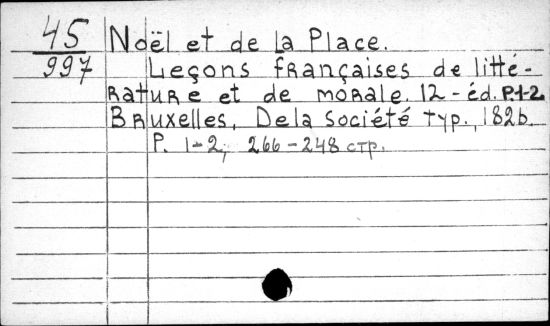 45
997
Noël et de La Place.
Leçons françaises de litté-
rature et de morale. 12-éd. P.1-2.
Bruxelles, De la Société typ., 1826.
P. 1-2; 266-248 стр.